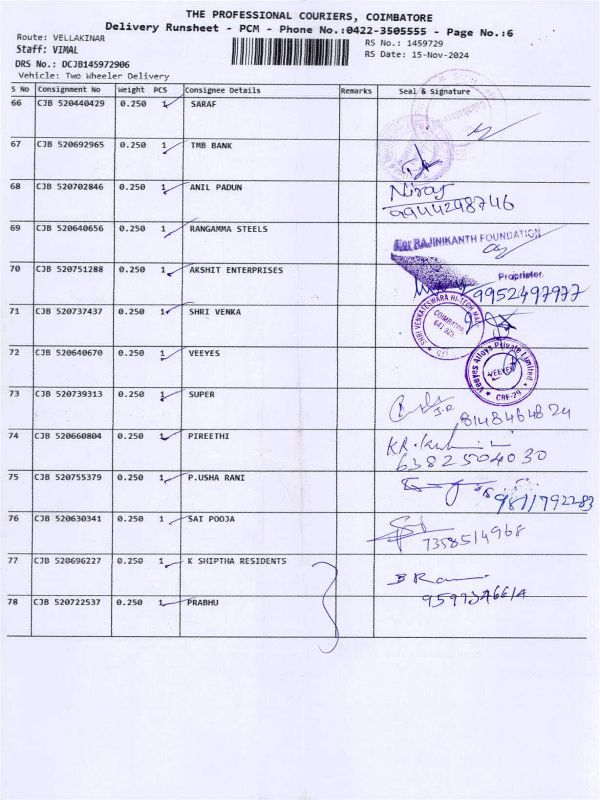 THE PROFESSIONAL COURIERS, COIMBATORE
Delivery Runsheet - PCM - Phone No.:0422-3505555 - Page No.:6
Route: VELLAKINAR
RS No.: 1459729
Staff: VIMAL
RS Date: 15-Nov-2024
DRS No.: DCJB145972906
Vehicle: Two Wheeler Delivery
S No Consignment No Weight PCS Consignee Details Remarks Seal & Signature
66 CJB 520440429 0.250 1 SARAF
67 CJB 520692965 0.250 1 TMB BANK
68 CJB 520702846 0.250 1 ANIL PADUN Niraj
9944298746
69 CJB 520640656 0.250 1 RANGAMMA STEELS
For RAJINIKANTH FOUNDATION
70 CJB 520751288 0.250 1 AKSHIT ENTERPRISES Proprietor
9952497977
71 CJB 520737437 0.250 1 SHRI VENKA
SHRI VENKATESWARA HI-TECH
COIMBATORE
641 029
72 CJB 520640670 0.250 1 VEEYES
Veeyes Alloys Private Limited
VEEYES
CBE-29
73 CJB 520739313 0.250 1 SUPER
8148464824
74 CJB 520660804 0.250 1 PIREETHI
6382504030
75 CJB 520755379 0.250 1 P.USHA RANI
9811792283
76 CJB 520630341 0.250 1 SAI POOJA
7358514968
77 CJB 520696227 0.250 1 K SHIPTHA RESIDENTS
78 CJB 520722537 0.250 1 PRABHU